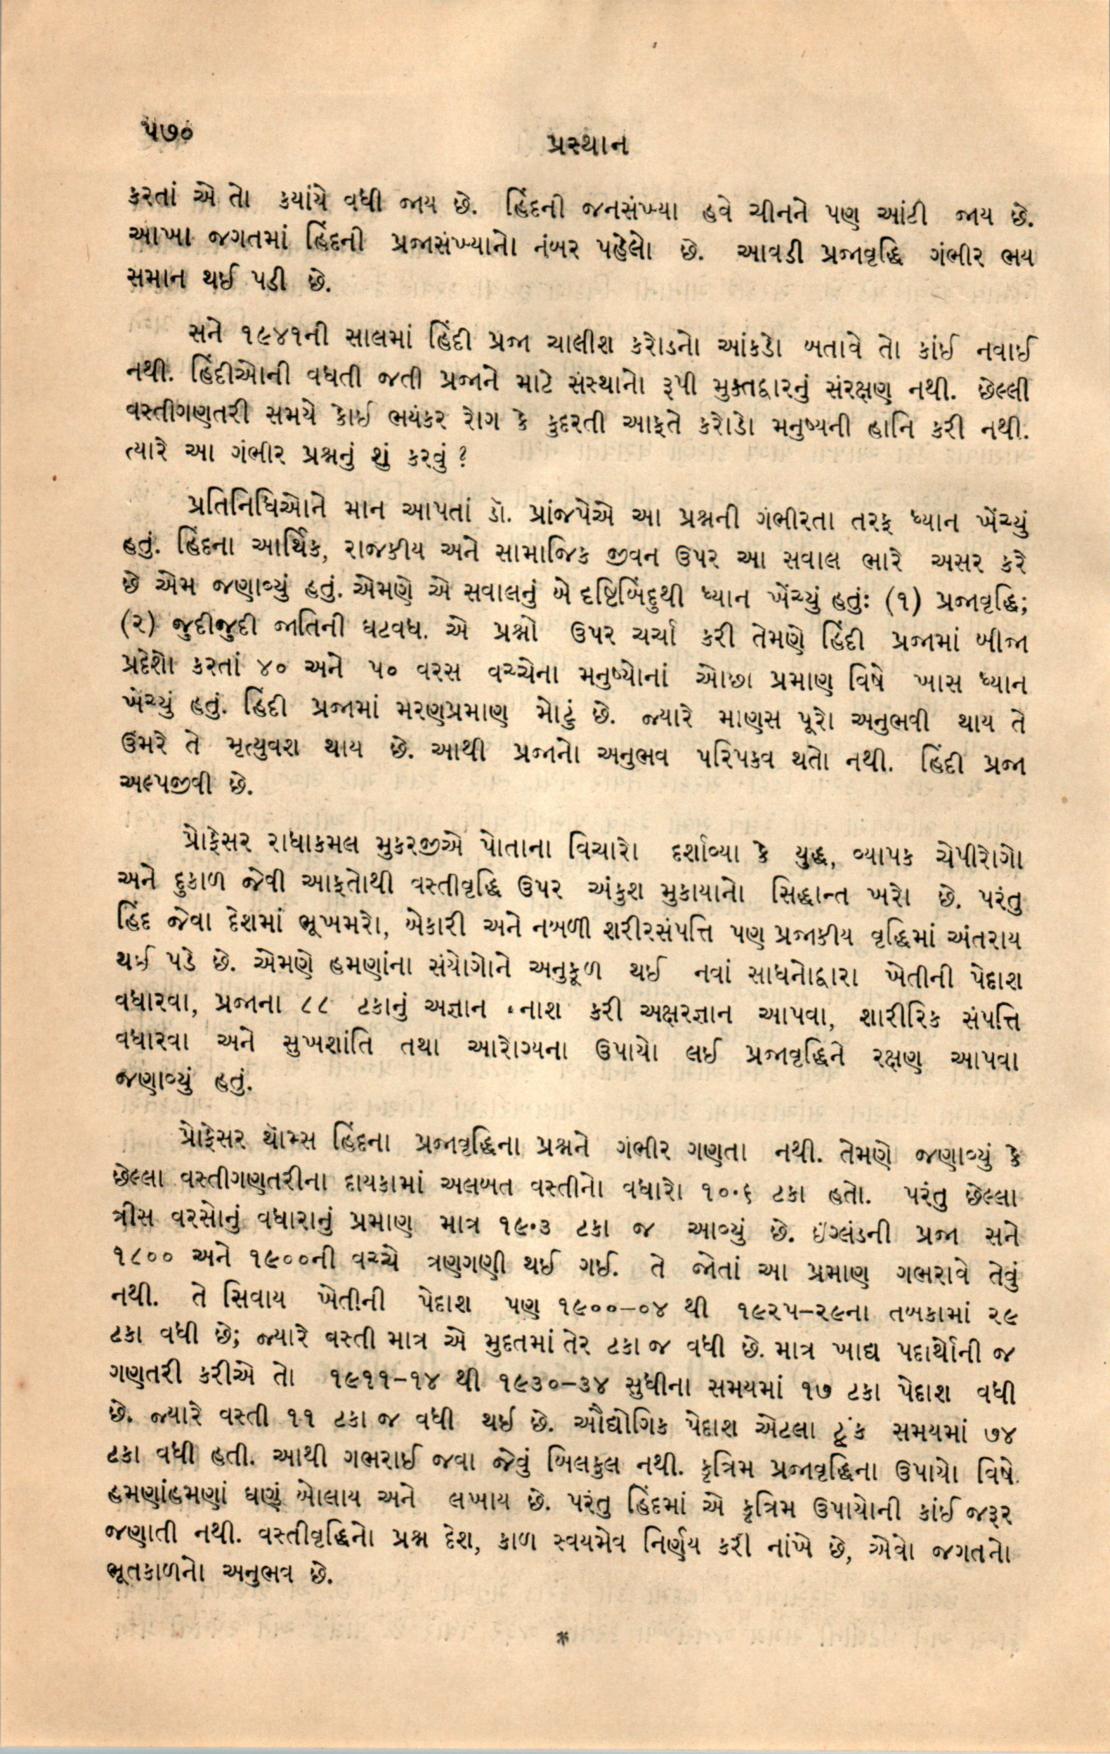 ૫૭૦
પ્રસ્થાન
કરતાં એ તો કયાંયે વધી જાય છે. હિંદની જનસંખ્યા હવે ચીનને પણ આંટી જાય છે.
આખા જગતમાં હિંદની પ્રજાસંખ્યાનો નંબર પહેલો છે. આવડી પ્રજાવૃદ્ધિ ગંભીર ભય
સમાન થઈ પડી છે.
સને ૧૯૪૧ની સાલમાં હિંદી પ્રજા ચાલીશ કરોડનો આંકડો બતાવે તો કાંઈ નવાઈ
નથી. હિંદીઓની વધતી જતી પ્રજાને માટે સંસ્થાનો રૂપી મુક્તદ્વારનું સંરક્ષણ નથી. છેલ્લી
વસ્તીગણતરી સમયે કોઈ ભયંકર રોગ કે કુદરતી આફતે કરોડો મનુષ્યની હાનિ કરી નથી.
ત્યારે આ ગંભીર પ્રશ્નનું શું કરવું ?
પ્રતિનિધિઓને માન આપતાં ડૉ. પ્રાંજપેએ આ પ્રશ્નની ગંભીરતા તરફ ધ્યાન ખેંચ્યું
હતું. હિંદના આર્થિક, રાજકીય અને સામાજિક જીવન ઉપર આ સવાલ ભારે અસર કરે
છે એમ જણાવ્યું હતું. એમણે એ સવાલનું બે દૃષ્ટિબિંદુથી ધ્યાન ખેંચ્યું હતુંઃ (૧) પ્રજાવૃદ્ધિ;
(૨) જુદીજુદી જાતિની ઘટવધ. એ પ્રશ્નો ઉપર ચર્ચા કરી તેમણે હિંદી પ્રજામાં બીજા
પ્રદેશો કરતાં ૪૦ અને ૫૦ વરસ વચ્ચેના મનુષ્યોનાં ઓછા પ્રમાણ વિષે ખાસ ધ્યાન
ખેંચ્યું હતું. હિંદી પ્રજામાં મરણપ્રમાણ મોટું છે. જ્યારે માણસ પૂરો અનુભવી થાય તે
ઉંમરે તે મૃત્યુવશ થાય છે. આથી પ્રજાનો અનુભવ પરિપકવ થતો નથી. હિંદી પ્રજા
અલ્પજીવી છે.
પ્રોફેસર રાધાકમલ મુકરજીએ પોતાના વિચારો દર્શાવ્યા કે યુદ્ધ, વ્યાપક ચેપીરોગો
અને દુકાળ જેવી આફતોથી વસ્તીવૃદ્ધિ ઉપર અંકુશ મુકાયાનો સિદ્ધાન્ત ખરો છે. પરંતુ
હિંદ જેવા દેશમાં ભૂખમરો, બેકારી અને નબળી શરીરસંપત્તિ પણ પ્રજાકીય વૃદ્ધિમાં અંતરાય
થઈ પડે છે. એમણે હમણાંના સંયોગોને અનુકૂળ થઈ નવાં સાધનોદ્વારા ખેતીની પેદાશ
વધારવા, પ્રજાના ૮૮ ટકાનું અજ્ઞાન નાશ કરી અક્ષરજ્ઞાન આપવા, શારીરિક સંપત્તિ
વધારવા અને સુખશાંતિ તથા આરોગ્યના ઉપાયો લઈ પ્રજાવૃદ્ધિને રક્ષણ આપવા
જણાવ્યું હતું.
પ્રોફેસર થૉમ્સ હિંદના પ્રજાવૃદ્ધિના પ્રશ્નને ગંભીર ગણતા નથી. તેમણે જણાવ્યું કે
છેલ્લા વસ્તીગણતરીના દાયકામાં અલબત વસ્તીનો વધારો ૧૦.૬ ટકા હતો. પરંતુ છેલ્લા
ત્રીસ વરસોનું વધારાનું પ્રમાણ માત્ર ૧૯.૩ ટકા જ આવ્યું છે. ઇંગ્લંડની પ્રજા સને
૧૮૦૦ અને ૧૯૦૦ની વચ્ચે ત્રણગણી થઈ ગઈ. તે જોતાં આ પ્રમાણ ગભરાવે તેવું
નથી. તે સિવાય ખેતીની પેદાશ પણ ૧૯૦૦–૦૪ થી ૧૯૨૫–૨૯ના તબકામાં ૨૯
ટકા વધી છે; જ્યારે વસ્તી માત્ર એ મુદતમાં તેર ટકા જ વધી છે. માત્ર ખાદ્ય પદાર્થોની જ
ગણતરી કરીએ તો ૧૯૧૧–૧૪ થી ૧૯૩૦–૩૪ સુધીના સમયમાં ૧૭ ટકા પેદાશ વધી
છે. જ્યારે વસ્તી ૧૧ ટકા જ વધી થઈ છે. ઔદ્યોગિક પેદાશ એટલા ટૂંક સમયમાં ૭૪
ટકા વધી હતી. આથી ગભરાઈ જવા જેવું બિલકુલ નથી. કૃત્રિમ પ્રજાવૃદ્ધિના ઉપાયો વિષે
હમણાંહમણાં ઘણું બોલાય અને લખાય છે. પરંતુ હિંદમાં એ કૃત્રિમ ઉપાયોની કાંઈ જરૂર
જણાતી નથી. વસ્તીવૃદ્ધિનો પ્રશ્ન દેશ, કાળ સ્વયમેવ નિર્ણય કરી નાંખે છે, એવો જગતનો
ભૂતકાળનો અનુભવ છે.
*